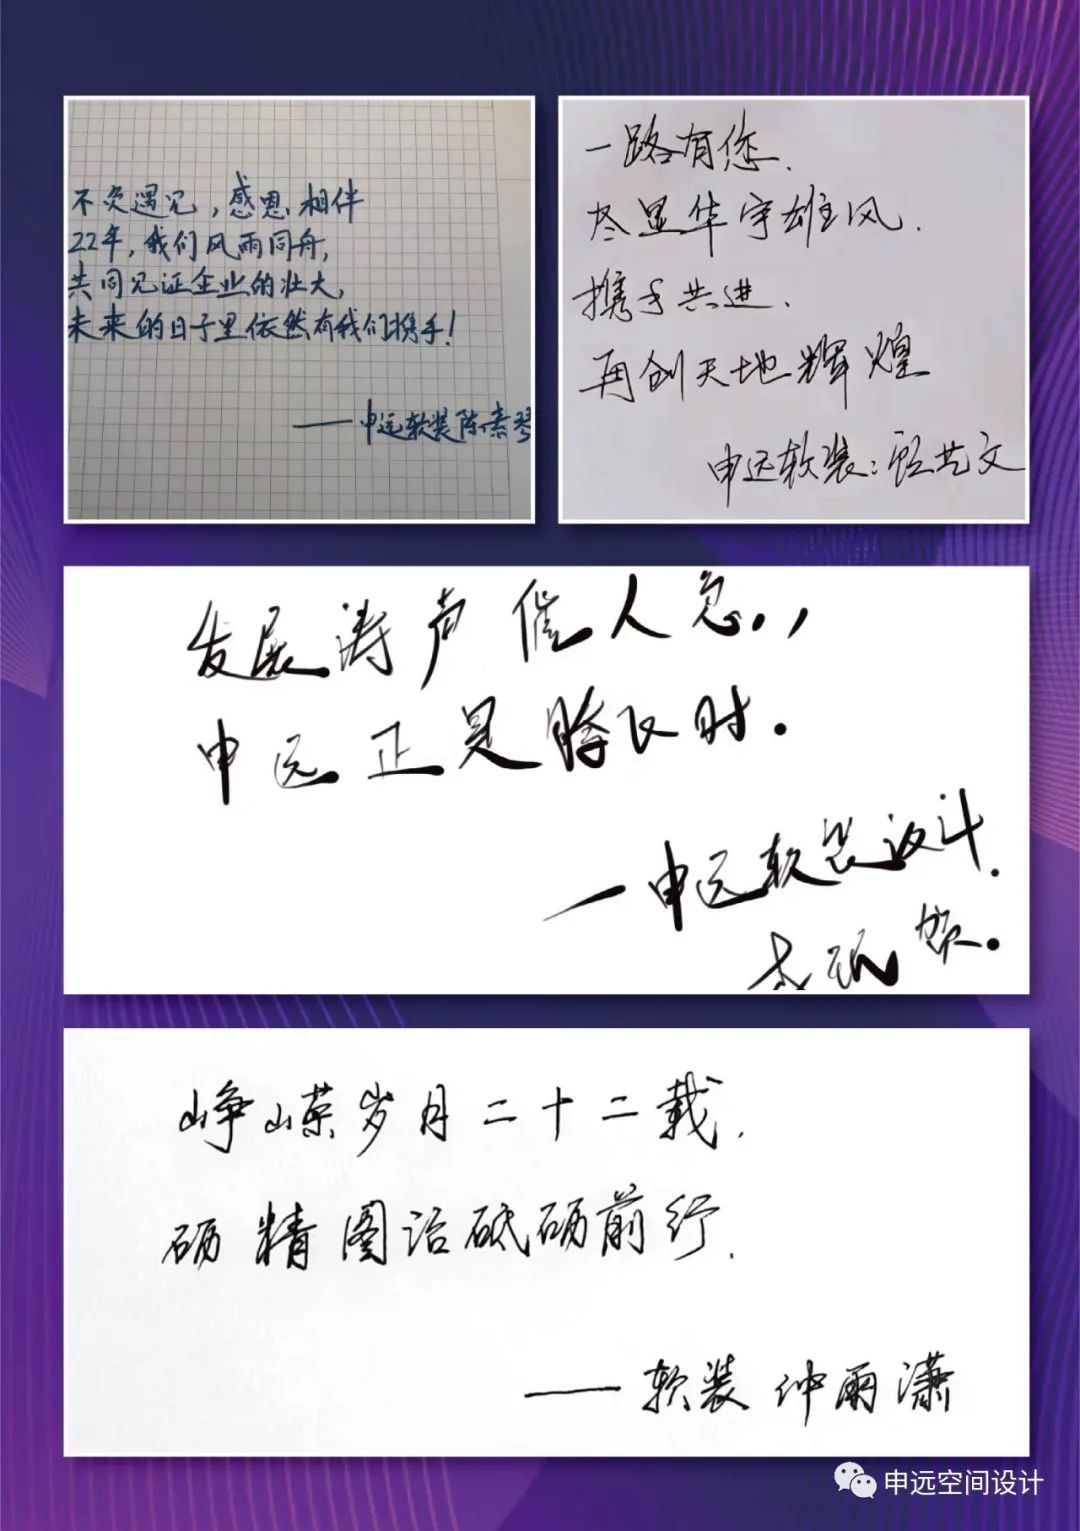 不负遇见，感恩相伴
22年，我们风雨同舟，
共同见证企业的壮大，
未来的日子里依然有我们携手！
——申远软装陈素琴
一路有您.
尽显华宇雄风.
携手共进.
再创天地辉煌
申远软装：顾艺文
发展涛声催人急，
申远正是腾飞时.
一申远软装设计.
峥嵘岁月二十二载.
砺精图治砥砺前行.
——软装 仲雨潇
申远空间设计